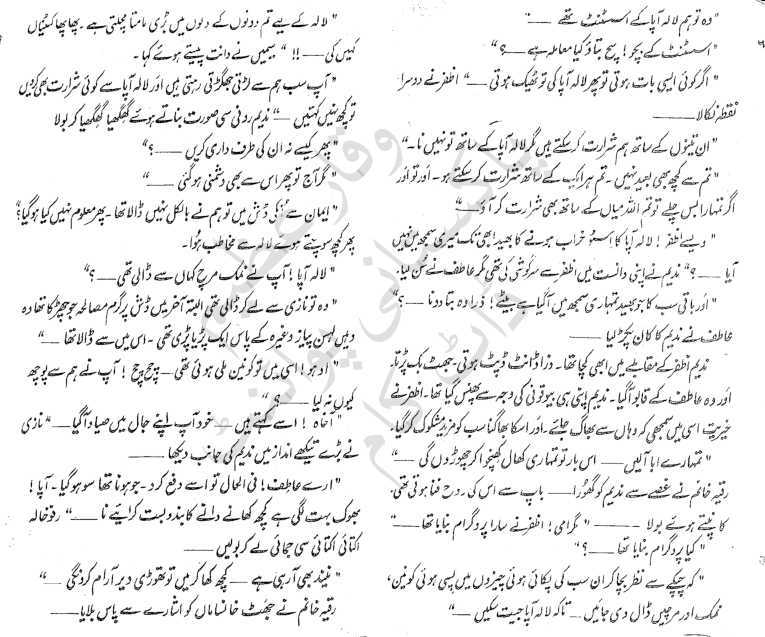 "وہ تو ہم لالہ آپا کے اسسٹنٹ تھے ـــــ"
"اسسٹنٹ کے بچو! سچ بتاؤ کیا معاملہ ہے ـــــ؟"
"اگر کوئی ایسی بات ہوتی تو پھر لالہ آپا کی تو ٹھیک ہوتی ـــــ" اظفر نے دوسرا
نقطہ نکالا ـــــ
"ان تینوں کے ساتھ ہم شرارت کر سکتے ہیں مگر لالہ آپا کے ساتھ تو نہیں نا۔"
"تم سے کچھ بھی بعید نہیں۔ تم ہر ایک کے ساتھ شرارت کر سکتے ہو۔ اور تو اور
اگر تمہارا بس چلے تو تم اللہ میاں کے ساتھ بھی شرارت کر آؤ ـــــ"
"ویسے اظفر! لالہ آپا کا اسٹو خراب ہونے کا بھید ابھی تک میری سمجھ میں نہیں
آیا ـــــ؟" ندیم نے اپنی دانست میں اظفر سے سرگوشی کی تھی مگر عاطف نے سن لیا۔
"اور باقی سب کا جو بھید تمہاری سمجھ میں آ گیا ہے بیٹے! ذرا وہ بتا دونا ـــــ؟"
عاطف نے ندیم کا کان پکڑ لیا ـــــ
ندیم اظفر کے مقابلے میں ابھی کچا تھا۔ ذرا ڈانٹ ڈپٹ ہوتی۔ جھٹ بک پڑتا۔
اور وہ عاطف کے قابو آ گیا۔ ندیم اپنی ہی بیوقوفی کی وجہ سے پھنس گیا تھا۔ اظفر نے
خیریت اسی میں سمجھی کہ وہاں سے بھاگ جائے۔ اور اسکا بھاگنا سب کو مزید مشکوک کر گیا۔
"تمہارے ابا آلیں ـــــ اس بار تو تمہاری کھال کھنچوا کر چھوڑوں گی ـــــ"
رقیہ خانم نے غصے سے ندیم کو گھورا ـــــ باپ سے اس کی روح فنا ہوتی تھی۔
کانپتے ہوئے بولا ـــــ "مگر امی! اظفر نے سارا پروگرام بنایا تھا ـــــ"
"کیا پروگرام بنایا تھا ـــــ؟"
"کہ چپکے سے نظر بچا کر ان سب کی پکائی ہوئی چیزوں میں پسی ہوئی کونین،
نمک اور مرچیں ڈال دی جائیں ـــــ تاکہ لالہ آپا جیت سکیں ـــــ"
"لالہ کے لیے تم دونوں کے دلوں میں بڑی مامتا مچلتی ہے۔ پھاپھا کٹنیاں
کہیں کی ـــــ!!" سیمیں نے دانت پیستے ہوئے کہا۔
"آپ سب ہم سے لڑتی جھگڑتی رہتی ہیں اور لالہ آپا سے کوئی شرارت بھی کریں
تو کچھ نہیں کہتیں ـــــ" ندیم رونی سی صورت بناتے ہوئے گھگھیا گھگھیا کر بولا
"پھر کیسے نہ ان کی طرف داری کریں ـــــ؟"
"مگر آج تو پھر اس سے بھی دشمنی ہو گئی ـــــ"
"ایمان سے ان کی ڈش میں تو ہم نے بالکل نہیں ڈالا تھا۔ پھر معلوم نہیں کیا ہو گیا؟"
پھر کچھ سوچتے ہوئے لالہ سے مخاطب ہوا۔
"لالہ آپا! آپ نے نمک مرچ کہاں سے ڈالی تھی ـــــ؟"
"وہ تو نازی سے لے کر ڈالی تھی البتہ آخر میں ڈش پر گرم مصالحہ جو چھڑکا تھا وہ
وہیں لہسن پیاز وغیرہ کے پاس ایک پڑیا پڑی تھی۔ اس میں سے ڈالا تھا ـــــ"
"اوہو! اسی میں تو کونین ملی ہوئی تھی ـــــ چچ چچ! آپ نے ہم سے پوچھ
کیوں نہ لیا ـــــ؟"
"آہاہ! اسے کہتے ہیں ـــــ خود آپ اپنے جال میں صیاد آ گیا ـــــ" نازی
نے بڑے تیکھے انداز میں ندیم کی جانب دیکھا ـــــ
"ارے عاطف! فی الحال تو اسے دفع کرو۔ جو ہونا تھا سو ہو گیا۔ آپا!
بھوک بہت لگی ہے کچھ کھانے دانے کا بندوبست کرایئے نا ـــــ" رفو خالہ
اکتائی اکتائی سی جمائی لے کر بولیں ـــــ
"نیند بھی آ رہی ہے ـــــ کچھ کھا کر میں تو تھوڑی دیر آرام کروں گی ـــــ"
رقیہ خانم نے جھٹ خانساماں کو اشارے سے پاس بلایا ـــــ